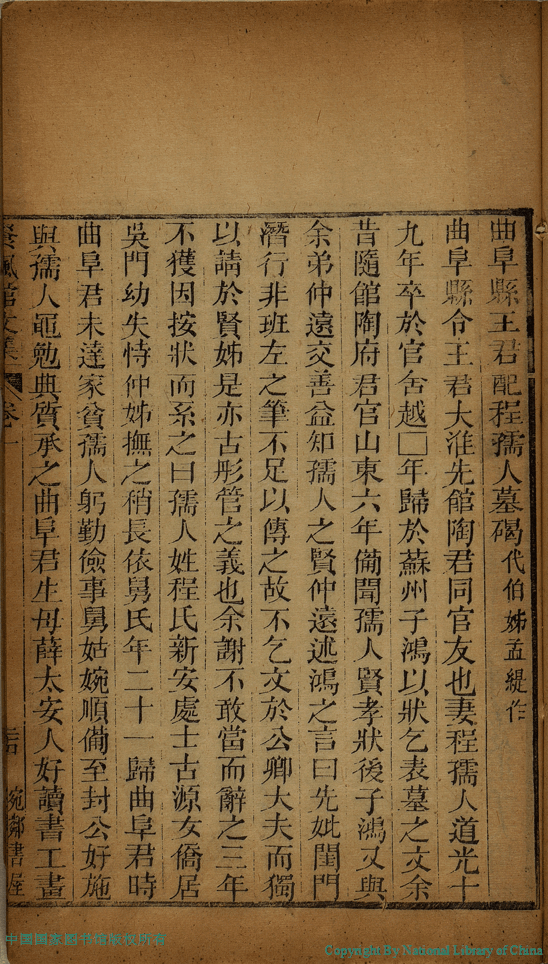 曲阜縣王君配程孺人墓碣代伯姊孟緹作
曲阜縣令王君大淮先館陶君同官友也妻程孺人道光十
九年卒於官舍越□年歸於蘇州子鴻以狀乞表墓之文余
昔隨館陶府君官山東六年備聞孺人賢孝狀後子鴻又與
余弟仲遠交善益知孺人之賢仲遠述鴻之言曰先妣閨門
潛行非班左之筆不足以傳之故不乞文於公卿大夫而獨
以請於賢姊是亦古彤管之義也余謝不敢當而辭之三年
不獲因按狀而系之曰孺人姓程氏新安處士古源女僑居
吳門幼失恃仲姊撫之稍長依舅氏年二十一歸曲阜君時
曲阜君未達家貧孺人躬勤儉事舅姑婉順備至封公好施
與孺人黽勉典質承之曲阜君生母薛太安人好讀書工畫
風館文集 卷一 宛鄰書屋
中国国家图书馆版权所有
Copyright By National Library of China